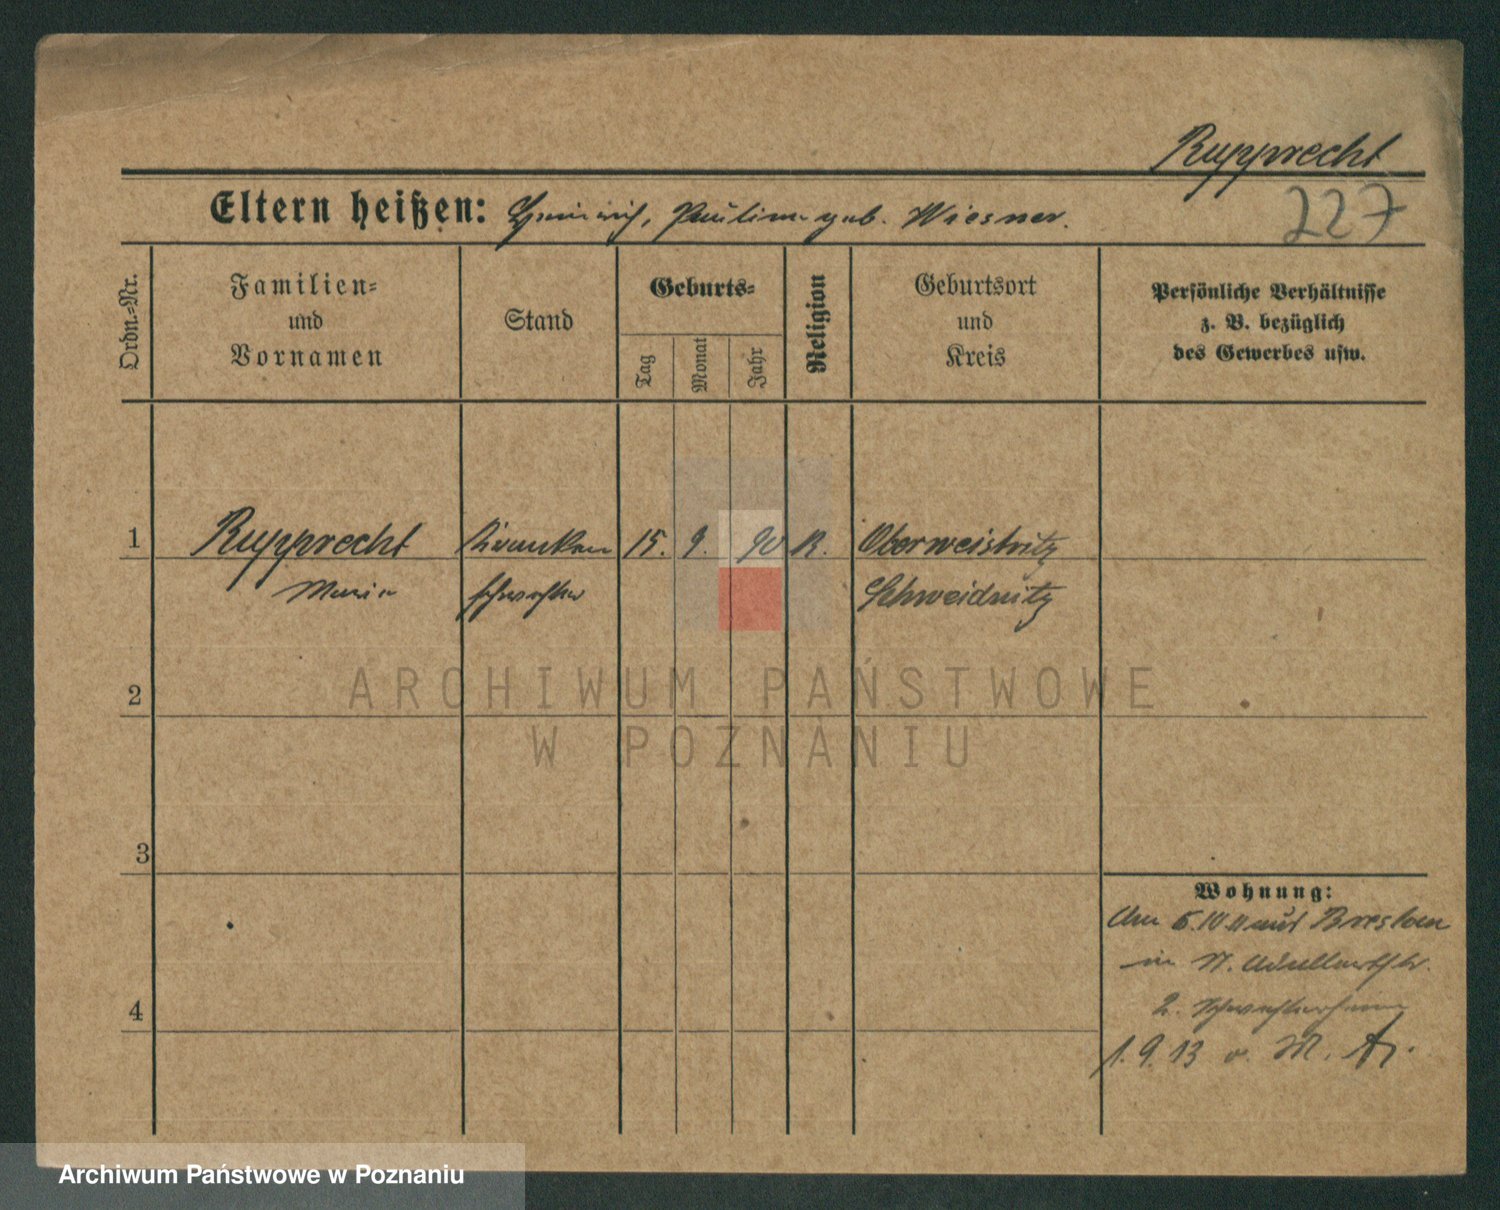 Rupprecht
Eltern heißen: Heinrich, Pauline geb. Wiesner.
227
Ordn.-Nr.
Familien-
und
Vornamen
Stand
Geburts-
Tag
Monat
Jahr
Religion
Geburtsort
und
Kreis
Persönliche Verhältnisse
z. B. bezüglich
des Gewerbes usw.
1 Rupprecht Kranken 15. 9. 90 K. Oberweistritz
Maria schwester Schweidnitz
2
3
4
Wohnung:
Am 5.10.11 aus Breslau
in St.
2. Schwesterheim
1. 9. 13 v. M.
ARCHIWUM PAŃSTWOWE
W POZNANIU
Archiwum Państwowe w Poznaniu